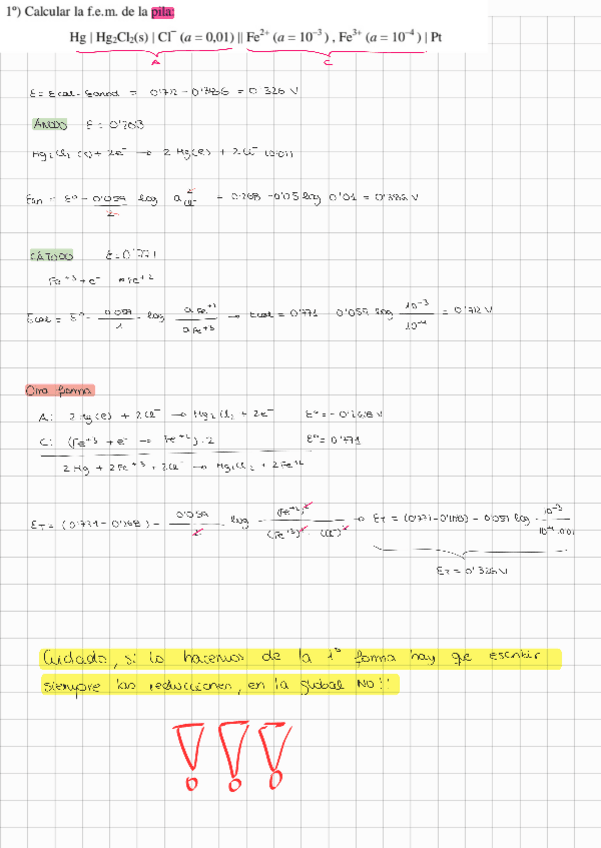 1º) Calcular la f.e.m. de la pila:
Hg | Hg₂Cl₂(s) | Cl⁻ (a = 0,01) || Fe²⁺ (a = 10⁻³) , Fe³⁺ (a = 10⁻⁴) | Pt
A C
E = Ecat - Eanod = 0'712 - 0'386 = 0'326 V
ÁNODO E = 0'268
Hg₂Cl₂ (s) + 2e⁻ → 2 Hg(l) + 2Cl⁻ (0.01)
Ean = Eº - 0'059/2 log a²Cl⁻ = 0.268 - 0.05 log 0'01 = 0'386 V
CÁTODO E = 0'771
Fe⁺³ + e⁻ → Fe⁺²
Ecat = Eº - 0.059/1 log aFe⁺²/aFe⁺³ → Ecat = 0'771 - 0'059 log 10⁻³/10⁻⁴ = 0'712 V
Otra forma
A: 2 Hg(l) + 2Cl⁻ → Hg₂Cl₂ + 2e⁻ Eº = -0'268 V
C: (Fe⁺³ + e⁻ → Fe⁺²) · 2 Eº = 0'771
2 Hg + 2 Fe⁺³ + 2Cl⁻ → Hg₂Cl₂ + 2 Fe⁺²
ET = (0'771 - 0'268) - 0'059/2 log (Fe⁺²)²/(Fe⁺³)² (Cl⁻)² → ET = (0'771 - 0'268) - 0'059 log 10⁻³/10⁻⁴ · 0.01
ET = 0'326 V
Cuidado, si lo hacemos de la 1ª forma hay que escribir
siempre las reducciones, en la global NO!!
!!!